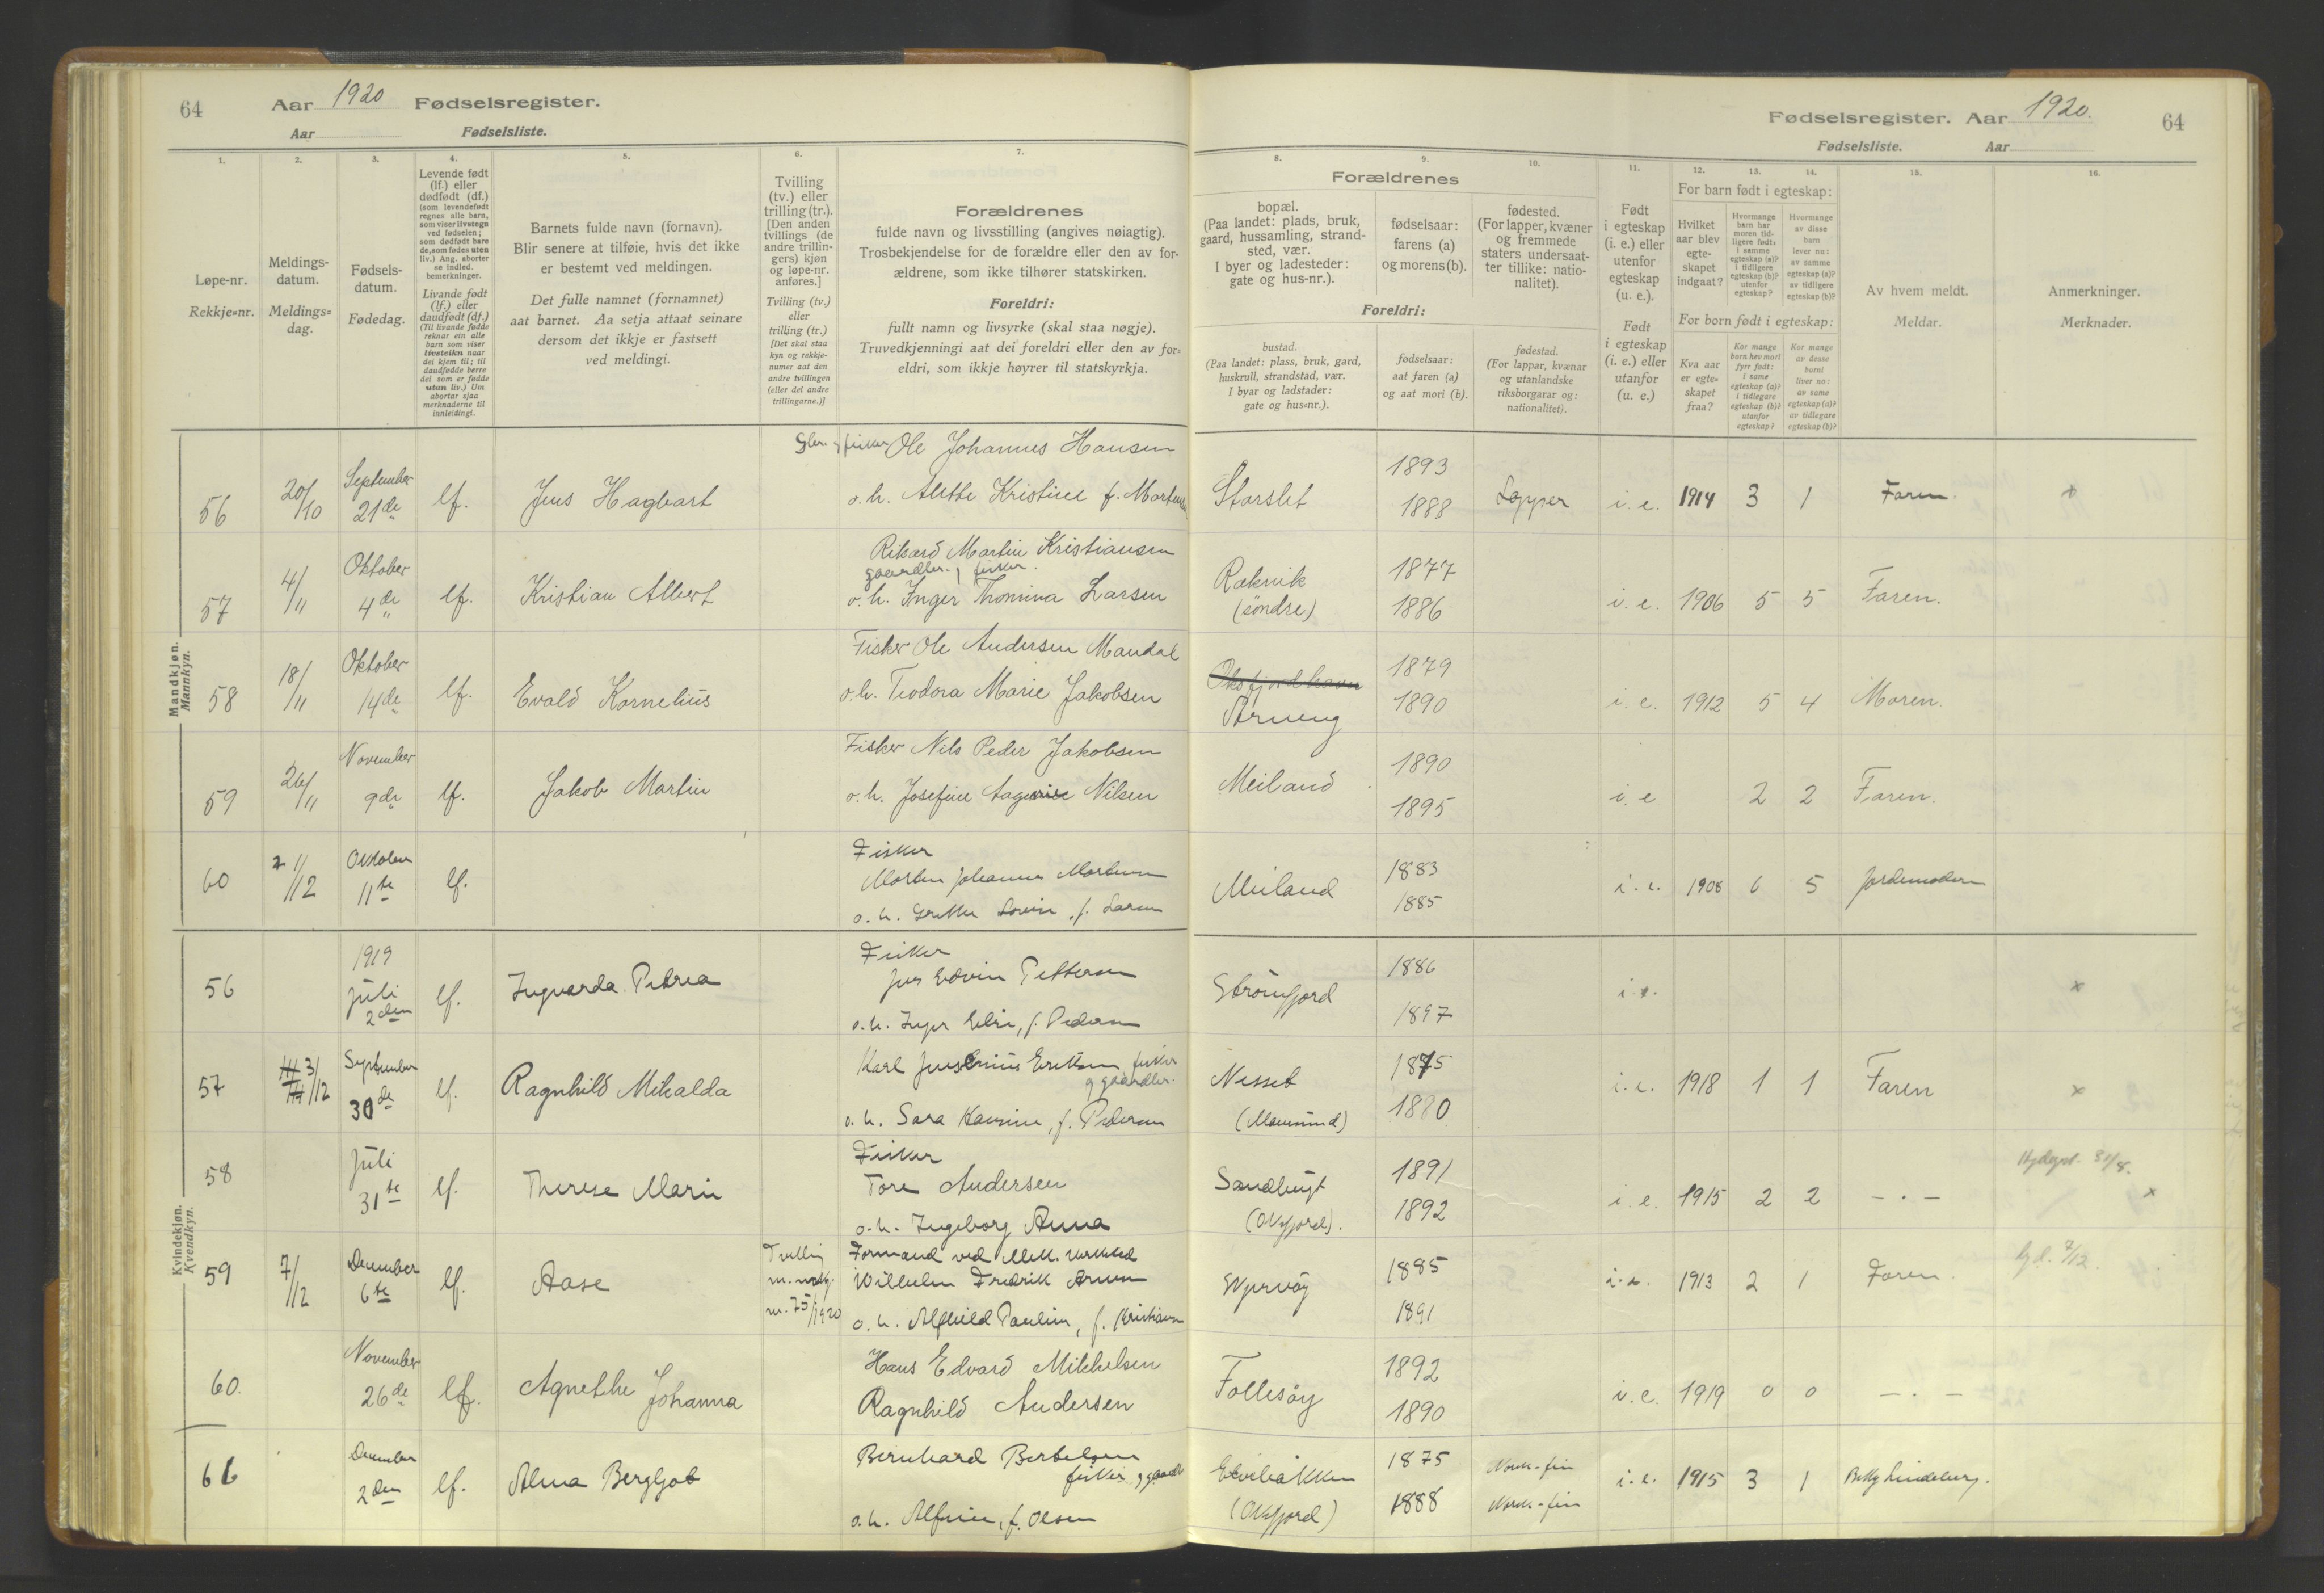 64 Aar 1920 Fødselsregister.
Aar Fødselsliste.
Fødselsregister. Aar 1920. 64
Fødselsliste. Aar
1. 2. 3. 4. 5. 6. 7.
Løpe-nr.
Rekkje=nr.
Meldings-
datum.
Meldings=
dag.
Fødsels-
datum.
Fødedag.
Levende født
(lf.) eller
dødfødt (df.)
(som levendefødt
regnes alle barn,
som viser livstegn
ved fødselen;
som dødfødt bare
de, som fødes uten
liv.) Ang. aborter
se indled.
bemerkninger.
Livande født
(lf.) eller
daudfødt (df.)
(Til livande fødde
reknar ein alle
barn som viser
livsteikn naar
dei kjem til; til
daudfødde berre
dei som er fødde
utan liv.) Um
abortar sjaa
merknaderne til
innleidingi.
Barnets fulde navn (fornavn).
Blir senere at tilføie, hvis det ikke
er bestemt ved meldingen.
Det fulle namnet (fornamnet)
aat barnet. Aa setja attaat seinare
dersom det ikkje er fastsett
ved meldingi.
Tvilling
(tv.) eller
trilling (tr.).
[Den anden
tvillings (de
andre trillin-
gers) kjøn
og løpe-nr.
anføres.]
Tvilling (tv.)
eller
trilling (tr.)
[Det skal staa
kyn og rekkje-
numer aat den
andre tvillingen
(eller dei andre
trillingarne.)]
Forældrenes
fulde navn og livsstilling (angives nøiagtig).
Trosbekjendelse for de forældre eller den av for-
ældrene, som ikke tilhører statskirken.
Foreldri:
fullt namn og livsyrke (skal staa nøgje).
Truvedkjenningi aat dei foreldri eller den av for=
eldri, som ikkje høyrer til statskyrkja.
8. 9. 10. 11. 12. 13. 14. 15. 16.
Forældrenes
bopæl.
(Paa landet: plads, bruk,
gaard, hussamling, strand-
sted, vær.
I byer og ladesteder:
gate og hus-nr.).
fødselsaar:
farens (a)
og morens (b).
fødested.
(For lapper, kvæner
og fremmede
staters undersaat-
ter tillike: natio-
nalitet).
Foreldri:
bustad.
(Paa landet: plass, bruk, gard,
huskrull, strandstad, vær.
I byar og ladstader:
gate og hus=nr.).
fødselsaar:
aat faren (a)
og aat mori (b).
fødestad.
(For lappar, kvænar
og utanlandske
riksborgarar og:
nationalitet).
Født
i egteskap
(i. e.) eller
utenfor
egteskap
(u. e.).
Født
i egteskap
(i. e.) eller
utanfor
(u. e.)
For barn født i egteskap:
Hvilket
aar blev
egte-
skapet
indgaat?
Hvormange
barn har
moren tid-
ligere født:
i samme
egteskap (a)?
i tidligere
egteskap (b)?
utenfor
egteskap?
Hvormange
av disse
barn
lever nu:
av samme
egteskap (a)?
av tidligere
egteskap (b)?
For born født i egteskap:
Kva aar
er egte-
skapet
fraa?
Kor mange
born hev mori
fyrr født:
i same
egteskap (a)?
i tidlegare
egteskap (b)?
utanfor
egteskap?
Kor mange
av desse
borni
liver no:
av same
egteskap (a)?
av tidlegare
egteskap (b)?
Av hvem meldt.
Meldar.
Anmerkninger.
Merknader.
Mandkjøn.
Mannkyn.
56 20/10 September 21de lf. Jens Hagbart
fisker Ole Johannes Hansen
o. h. Alette Kristine f. Mortensen
Storslet 1893 1888 Lopper i. e. 1914 3 1 Faren x
57 4/11 Oktober 4de lf. Kristian Albert
Rikard Martin Kristiansen
gaardbr. fisker.
o. h. Inger Thomina Larsen
Rakvik (söndre) 1877 1886 i. e. 1906 5 5 Faren.
58 18/11 Oktober 14de lf. Evald Kornelius
Fisker Ole Andersen Mandal
o. h. Teodora Marie Jakobsen
Oksfjordhavn
Arneng 1879 1890 i. e. 1912 5 4 Moren.
59 26/11 November 9de lf. Jakob Martin
Fisker Nils Peder Jakobsen
o. h. Josefine Nilsen
Meiland 1890 1895 i. e 2 2 Faren.
60 21/12 Oktober 11te lf.
Fisker
Morten Johannes Mortensen
o. h. Lovise, f. Larsen
Meiland 1883 1885 i. e. 1908 6 5 Jordemoderen
Kvindekjøn.
Kvendkyn.
56 1919 Juli 2den lf. Ingvarda Petrea
Fisker
Jens Edvin Pettersen
o. h. Inger Eline, f. Pedersen
Strömfjord 1886 1897 i. e. x
57 3/12 September 30de lf. Ragnhild Mikalda
Karl Eriksen fisker
g gaardbr.
o. h. Sara Hansine, f. Pedersen
Nesset
(Maursund) 1875 1880 i. e. 1918 1 1 Faren x
58 Juli 31te lf. Therese Marie
Fisker
Tore Andersen
o. h. Ingeborg Anna
Sandbugt
(Oksfjord). 1891 1892 i. e. 1915 2 2 — · — Hjdøpt. 31/8. x
59 7/12 December 6te lf. Aase
Tvilling
m. mdkj.
nr. 75/1920
Formand ved Mek. Verksted
Willhelm Fredrik Arnesen
o. h. Alfhild Pauline, f. Kristiansen
Skjervöy 1885 1891 i. e. 1913 2 1 Faren. hjd. 7/12.
60. November 26de lf. Agnethe Johanna
Hans Edvard Mikkelsen
Ragnhild Andersen
Follesöy 1892 1890 i. e. 1919 0 0 — · —
61 December 2den lf. Alma Bergljot
Bernhard Bertelsen
fisker g gaardbr
o. h. Alfine, f. Olsen
Elvebakken
(Oksfjord) 1875 1888 Norsk-fin Norsk-fin i. e. 1915 3 1 Betty Lindeberg.